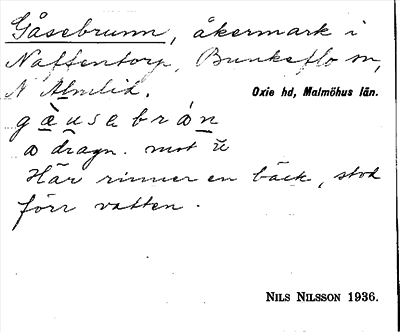 Gåsebrunn, åkermark i
Naffentorp, Bunkeflo sn,
N Almlid.
Oxie hd, Malmöhus län.
gæusebrán
a dragn. mot ŭ
Här rinner en bäck, stod
förr vatten.
NILS NILSSON 1936.